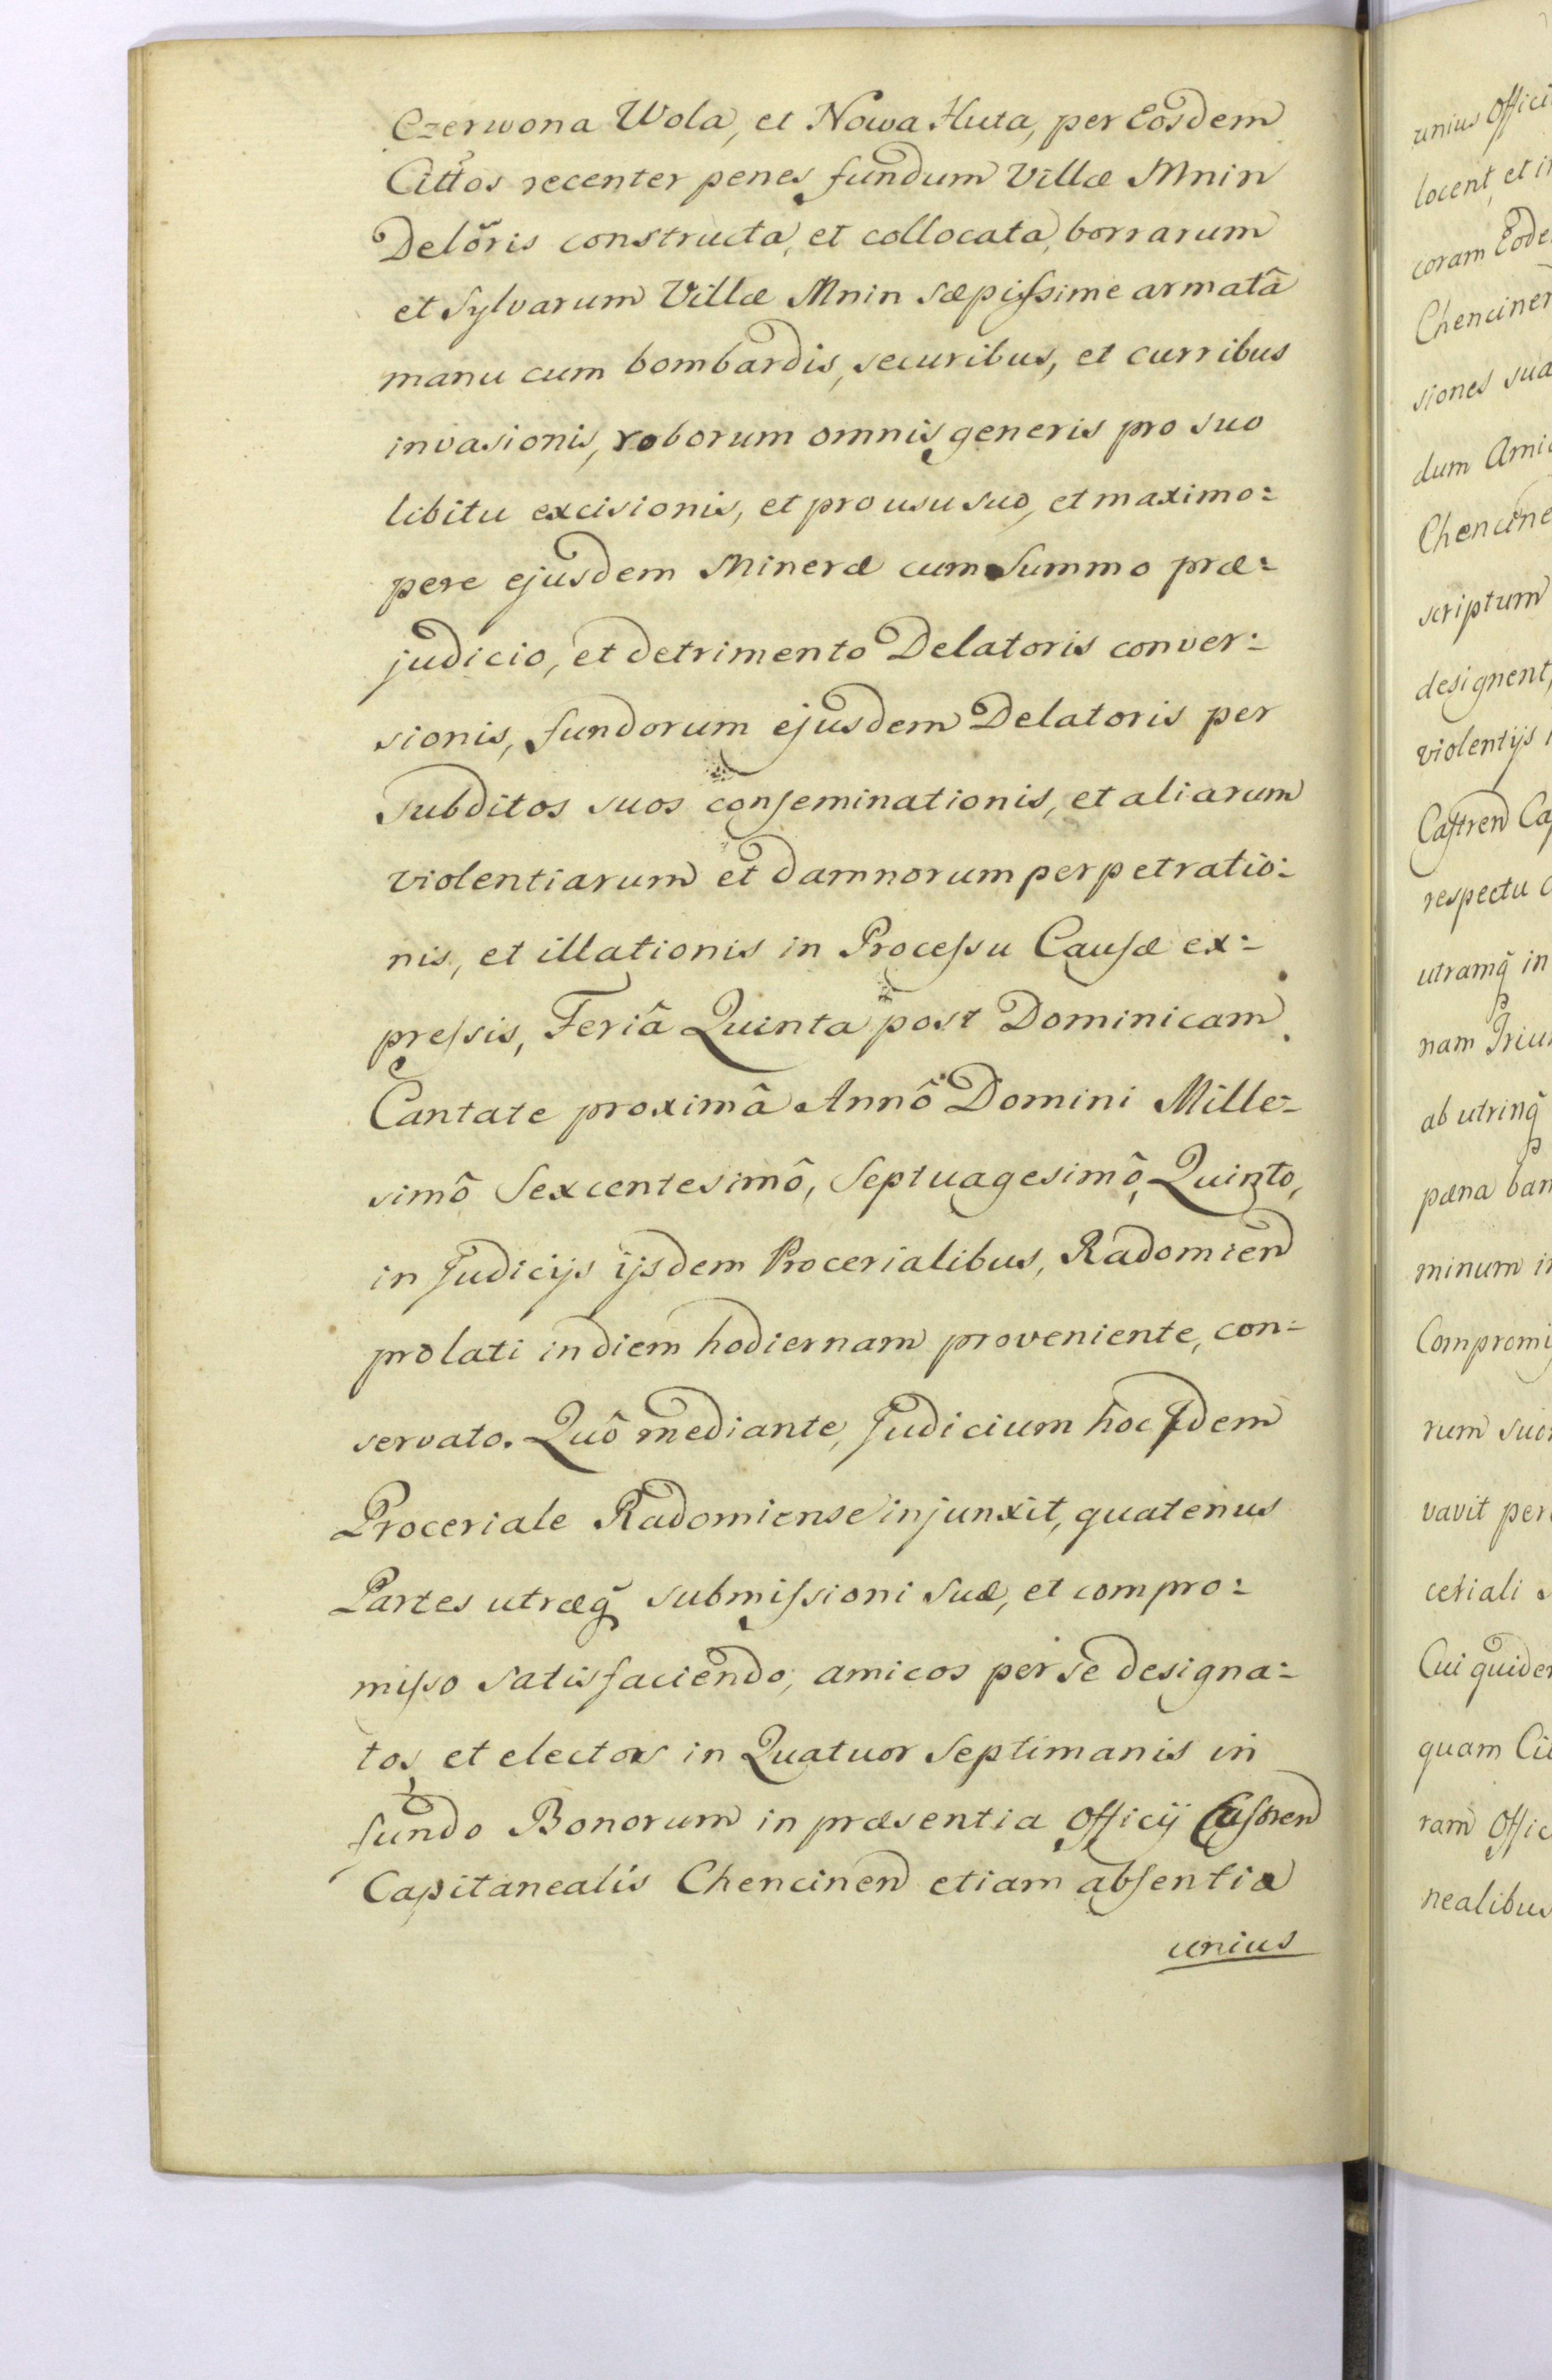 Czerwona Wola, et Nowa Huta, per Eosdem
Cittos recenter penes fundum Villæ Mnin
Delõris constructa, et collocata, borrarum
et Sylvarum Villæ Mnin sæpiſsime armatâ
manu cum bombardis, securibus, et curribus
invasionis, roborum omnis generis pro suo
libitu excisionis, et pro usu suo, et maximo:
pere ejusdem Mineræ cum Summo præ:
judicio, et detrimento Delatoris conver:
sionis, fundorum ejusdem Delatoris per
Subditos suos conſeminationis, et aliarum
violentiarum et damnorum perpetratio:
nis, et illationis in Proceſsu Cauſæ ex:
preſsis, Feriâ Quinta post Dominicam
Cantate proximâ Annô Domini Mille:
simô Sexcentesimô, Septuagesimô, Quinto,
in Judicijs ijsdem Procerialibus, Radomien
prolati in diem hodiernam proveniente, con:
servato. Quô mediante, Judicium hoc Idem
Proceriale Radomiense injunxit, quatenus
Partes utræq̃ submiſsioni suæ, et compro:
miſso satisfaciendo, amicos per se designa:
tos et electos in Quatuor Septimanis in
fundo Bonorum in præsentia Officij Caſtren
Capitanealis Chencinen etiam abſentia
unius
unius Offici
locent, et i
coram Eode
Chenciner
siones sua
dum Ami
Chencine
scriptum
designent,
violentijs
Caſtren Ca
respectu
utramq̃ in
nam Triu
ab utrinq̃
pæna ban
minum i
Compromi
rum suo
vavit per
ceriali
Cui quide
quam Ci
ram Offic
nealibus